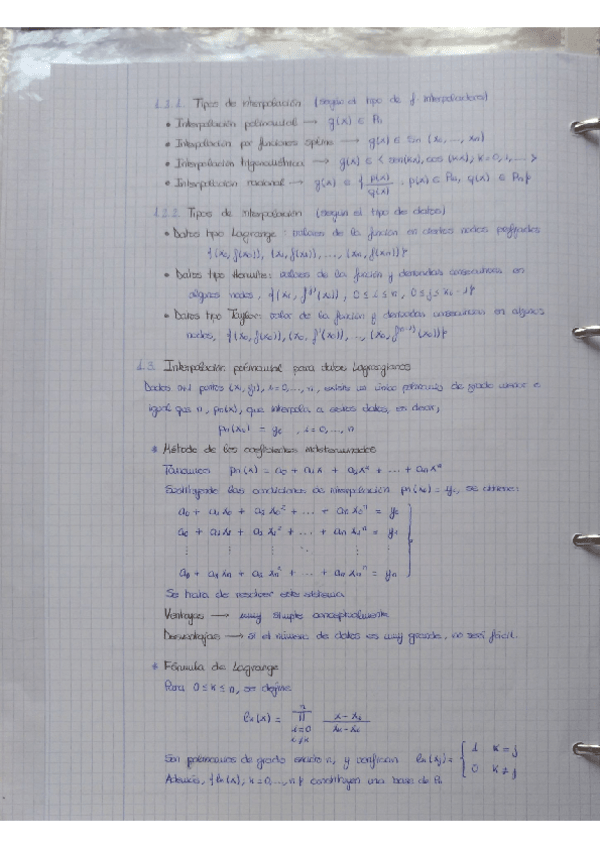 1.2.1. Tipos de interpolación (según el tipo de f. interpoladora)
• Interpolación polinomial → g(x) ∈ Pn
• Interpolación por funciones spline → g(x) ∈ Sm (x0, ..., xn)
• Interpolación trigonométrica → g(x) ∈ < sen(kx), cos (kx), k=0,1,... >
• Interpolación racional → g(x) ∈ { p(x)/q(x) , p(x) ∈ Pm, q(x) ∈ Pn }
1.2.2. Tipos de interpolación (según el tipo de datos)
• Datos tipo Lagrange: valores de la función en ciertos nodos prefijados
{(x0, f(x0)), (x1, f(x1)), ..., (xn, f(xn))}
• Datos tipo Hermite: valores de la función y derivadas consecutivas en
algunos nodos,
• Datos tipo Taylor: valor de la función y derivadas consecutivas en algunos
nodos, {(x0, f(x0)), (x0, f'(x0)), ..., (x0, f^(n-1)(x0))}
1.3. Interpolación polinomial para datos Lagrangianos
Dados n+1 puntos (xi, yi), i=0,..., n, existe un único polinomio de grado menor o
igual que n, pn(x), que interpola a estos datos, es decir,
pn(xi) = yi , i=0,..., n
* Método de los coeficientes indeterminados
Tomamos pn(x) = a0 + a1x + a2x² + ... + anxⁿ
Sustituyendo las condiciones de interpolación pn(xi) = yi, se obtiene:
a0 + a1 x0 + a2 x0² + ... + an x0ⁿ = y0
a0 + a1 x1 + a2 x1² + ... + an x1ⁿ = y1
⋮ ⋮ ⋮ ⋮ ⋮ ⋮
a0 + a1 xn + a2 xn² + ... + an xnⁿ = yn
Se trata de resolver este sistema.
Ventajas → muy simple conceptualmente
Desventajas → si el número de datos es muy grande, no será fácil.
* Fórmula de Lagrange
Para 0 ≤ k ≤ n, se define
n
lk(x) = Π (x - xi)/(xk - xi)
i=0
i≠k
Son polinomios de grado exacto n, y verifican lk(xj) = { 1 k = j
0 k ≠ j
Además, {lk(x), k=0,..., n} constituyen una base de Pn